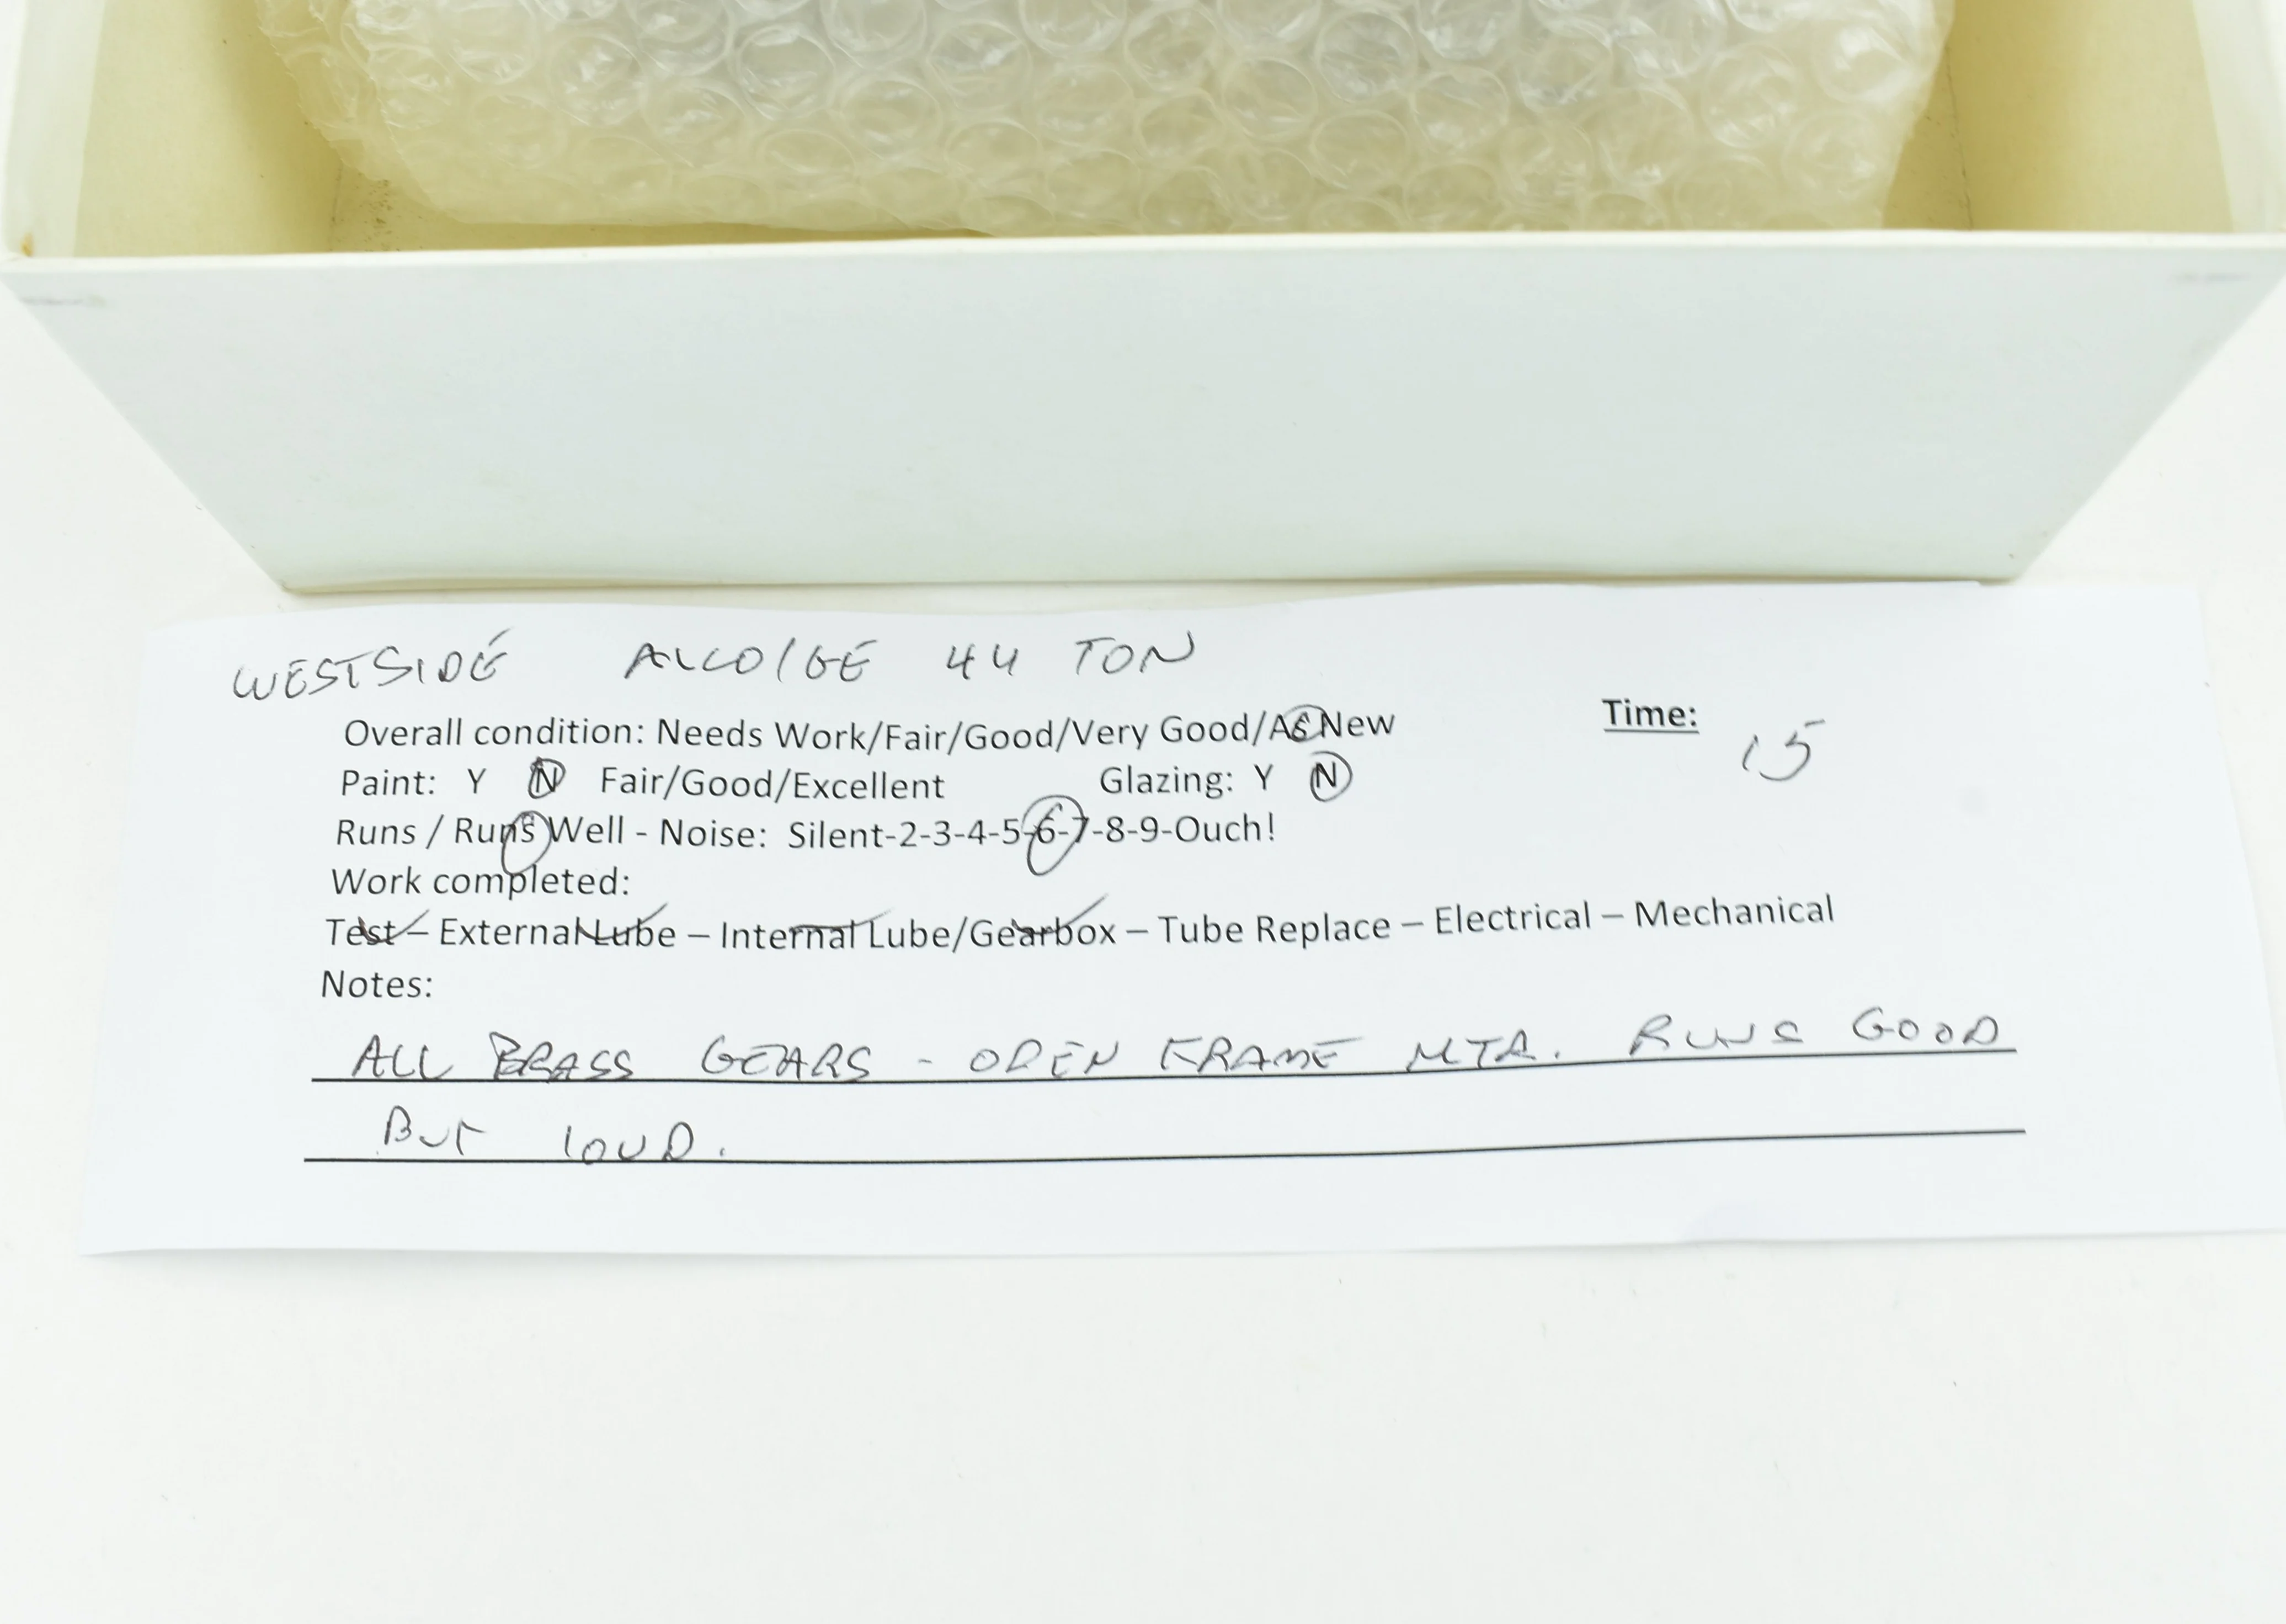 WESTSIDE ALCO/GE 44 TON
Overall condition: Needs Work/Fair/Good/Very Good/As New
Time: 15
Paint: Y N Fair/Good/Excellent Glazing: Y N
Runs / Runs Well - Noise: Silent-2-3-4-5-6-7-8-9-Ouch!
Work completed:
Test – External Lube – Internal Lube/Gearbox – Tube Replace – Electrical – Mechanical
Notes:
ALL BRASS GEARS - OPEN FRAME MTR. RUNS GOOD
BUT LOUD.